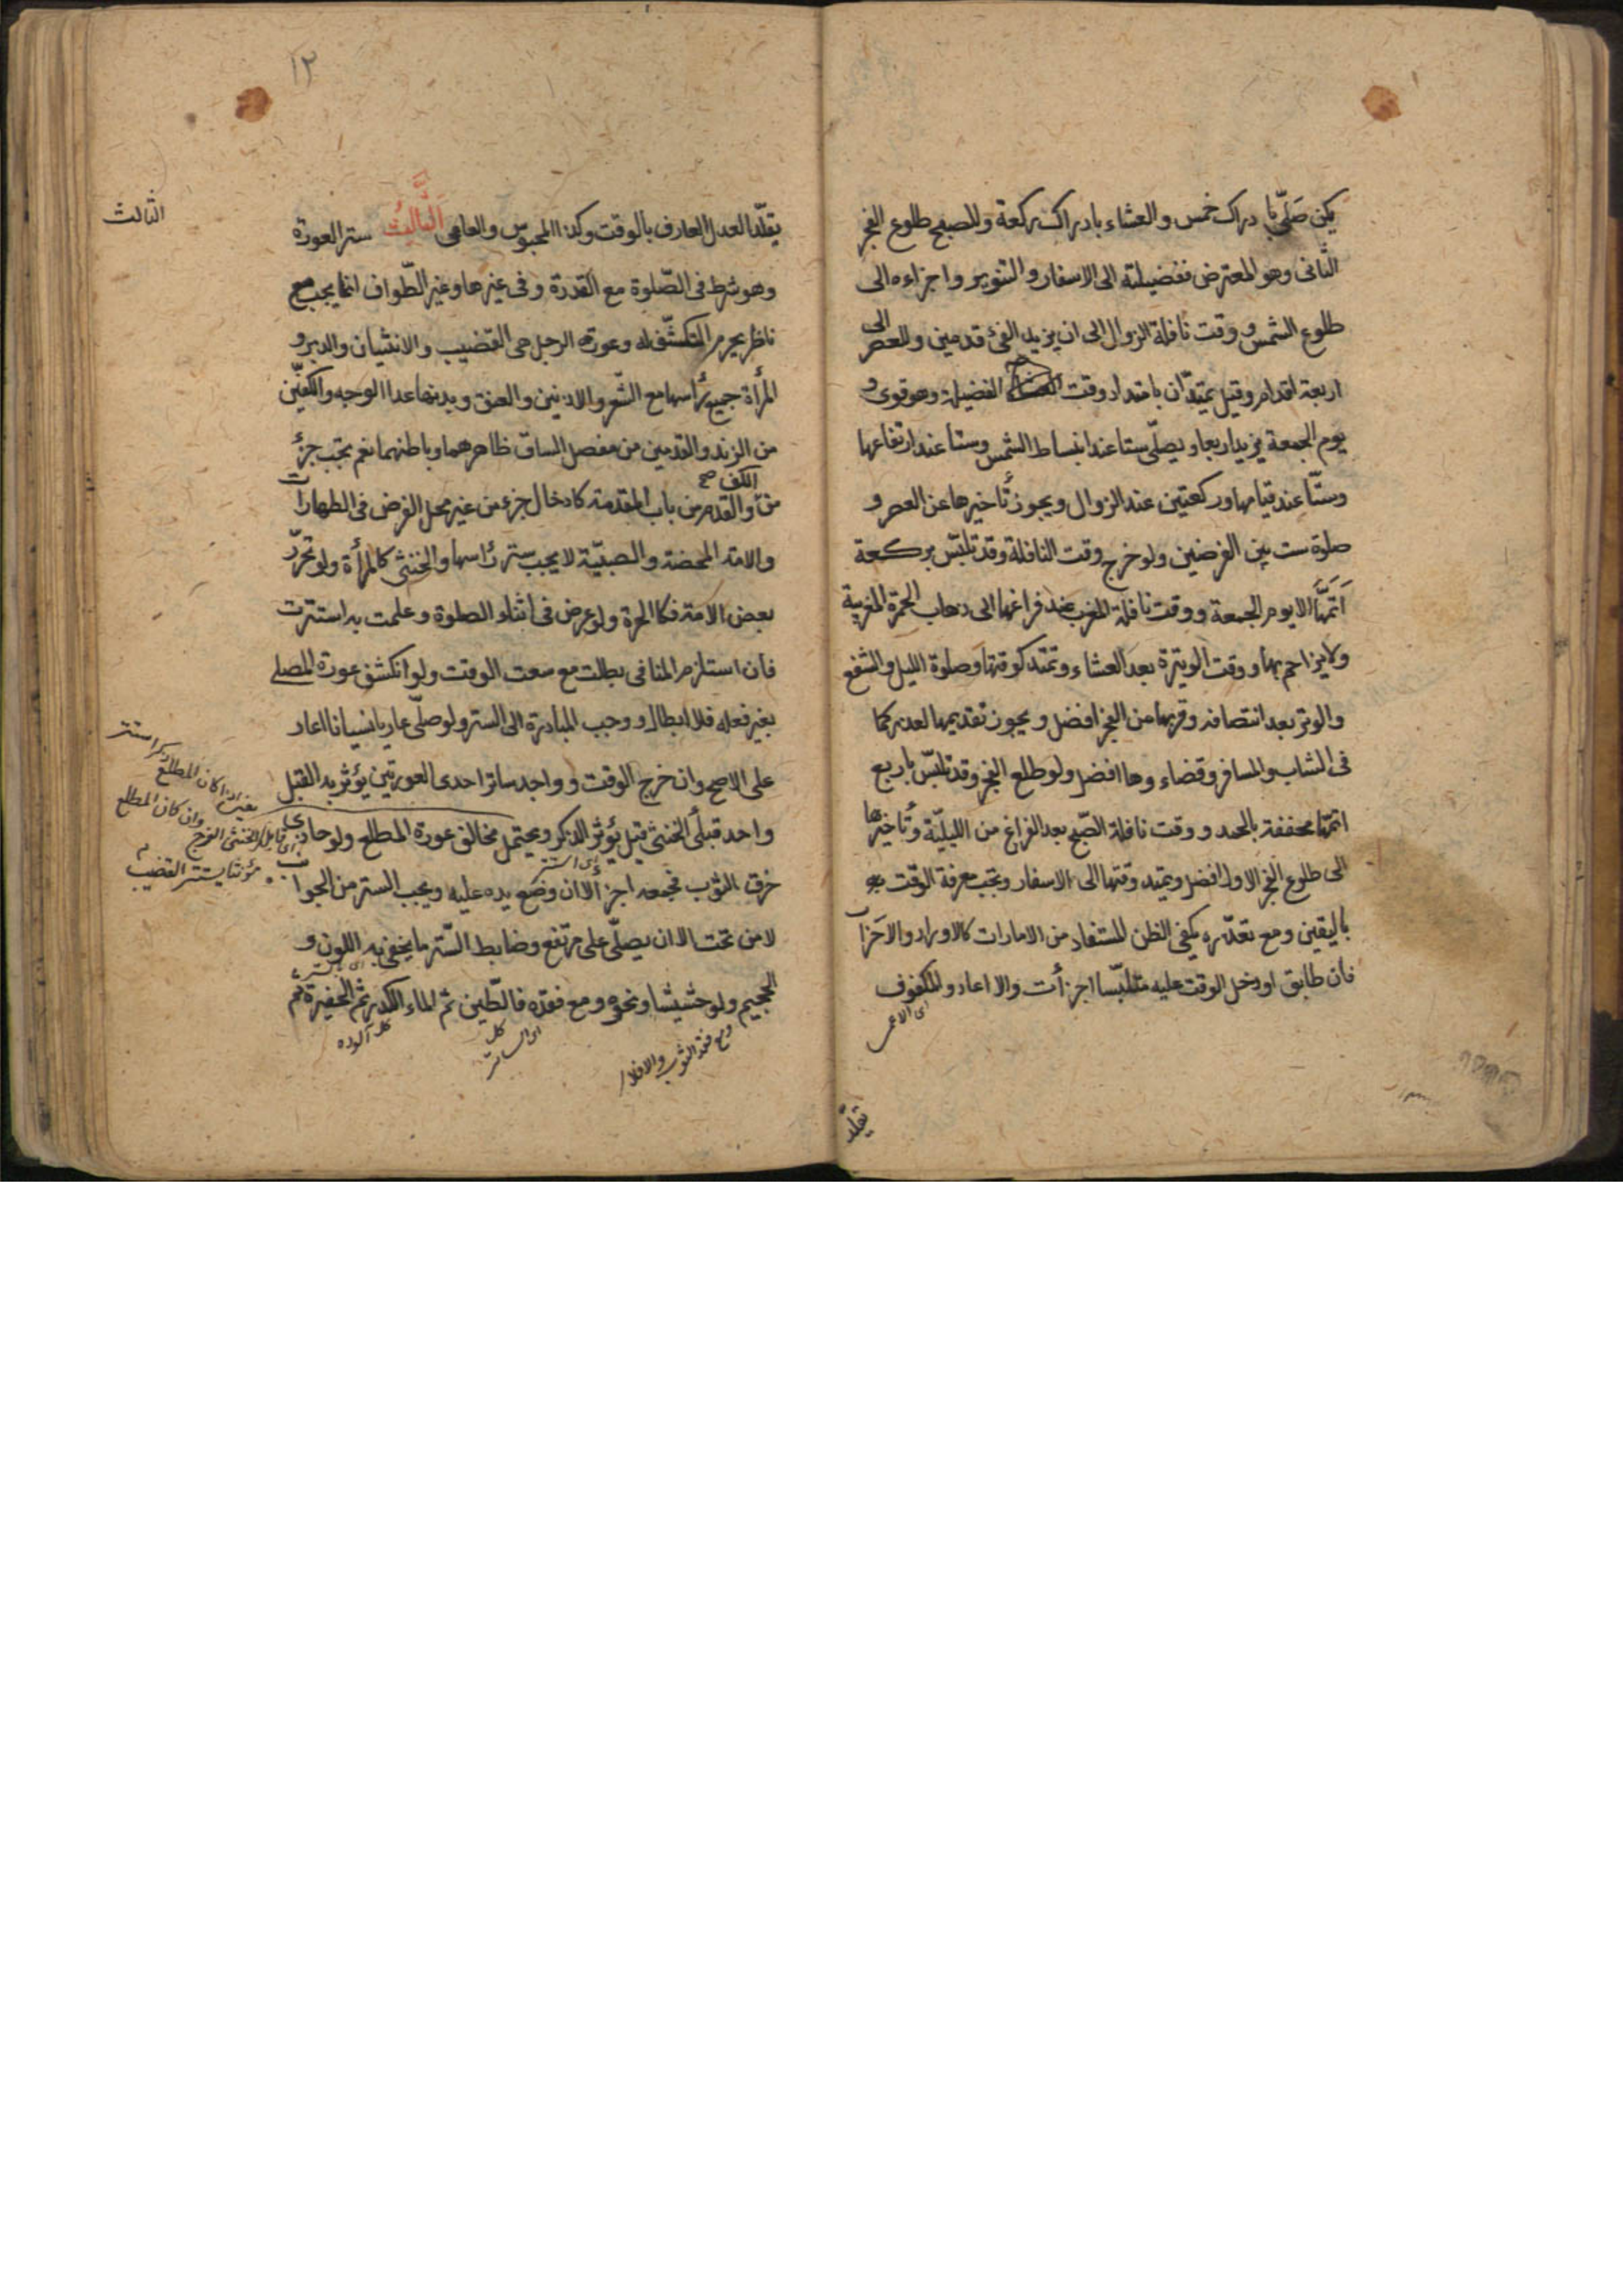 يكن صَلّى با دراك خمس والعشاء بادراك ركعة وللصبح طلوع الفجر
الثانى وهو المعترض ففضيلته الى الاسفار والتنوير واجزاءه الى
طلوع الشمس ووقت نافلة الزوال الى ان يزيد الفئ قدمين وللعصر الى
اربعة اقدام وقيل يمتدّان بامتداد وقت الفضيلة وهو قوى و
يوم الجمعة يزيد اربعا ويصلّى ستا عند انبساط الشمس وستا عند ارتفاعها
وستّا عند قيامها وركعتين عند الزوال ويجوز تأخيرها عن العصر و
صلوة ست بين الفرضين ولو خرج وقت النافلة وقد تلبّس بركعة
اَتَمَّها الا يوم الجمعة ووقت نافلة المغرب عند فراغها الى ذهاب الحمرة المغربية
ولا يزاحم بها ووقت الويترة بعد العشاء وتمتد كوقتها وصلوة الليل والشفع
والوتر بعد انتصافه وقربها من الفجر افضل ويجوز تقديمها لعذر كما
فى الشاب والمسافر وقضاءوها افضل ولو طلع الفجر وقد تلبّس باربع
اتمّها مخففة بالحمد ووقت نافلة الصّبح بعد الفراغ من الليليّة وتأخيرها
الى طلوع الفجر الاول افضل ويمتد وقتها الى الاسفار وتجب معرفة الوقت
باليقين ومع تعذّره يكفى الظن المستفاد من الامارات كالاوراد والاحزاب
فان طابق او دخل الوقت عليه متلبّسا اجزأت والا اعاد والمكفوف
اى الاعمى
يقلّد
١٢
الثالث
يقلّد العدل العارف بالوقت وكذا المحبوس والعامى الثّالِثُ ستر العورة
وهو شرط فى الصّلوة مع القدرة وفى غيرها وغير الطّواف انما يجب مع
ناظر يحرم التكشّف له وعورة الرجل هى القضيب والانثيان والدبر و
المرأة جميع رأسها مع الشّعر والاذنين والعنق وبدنها عدا الوجه والكفّين
من الزند والقدمين من مفصل الساق ظاهرهما وباطنهما نعم يجب جزُء
من الكف صح والقدم من باب المقدمة كادخال جزء من غير محل الفرض فى الطهارات
والامة المحضة والصبيّة لا يجب ستر رأسها والخنثى كالمرأة ولو تحرّر
بعض الامة فكالحرة ولو عرض فى اثناء الصلوة وعلمت به استترت
فان استلزم المنافى بطلت مع سعت الوقت ولو انكشف عورة المصلى
بغير فعله فلا ابطال ووجب المبادرة الى الستر ولو صلّى عاريا نسيانا اعاد
على الاصح وان خرج الوقت وواجد ساتر احدى العورتين يؤثر به القبل
واحد قبلَى الخنثى قيل يؤثر الذكر ويحتمل مخالف عورة المطلع ولو حاذى
خرق الثوب فجمعه اجزأ لا ان وضع يده عليه ويجب الستر من الجوانب
لا من تحت الا ان يصلّى على مرتفع وضابط السّتر ما يخفى به اللون و
الحجيم ولو حشيشا ونحوه ومع فقده فالطّين ثم الماء الكدر ثم الحفيرة ثم
ومع فقد الثوب والا فلا
كل آلوده
ذكر استتر
يعنى اذا كان المطلع
وان كان المطلع
الخنثى الفرج
مؤنثا يستتر القضيب